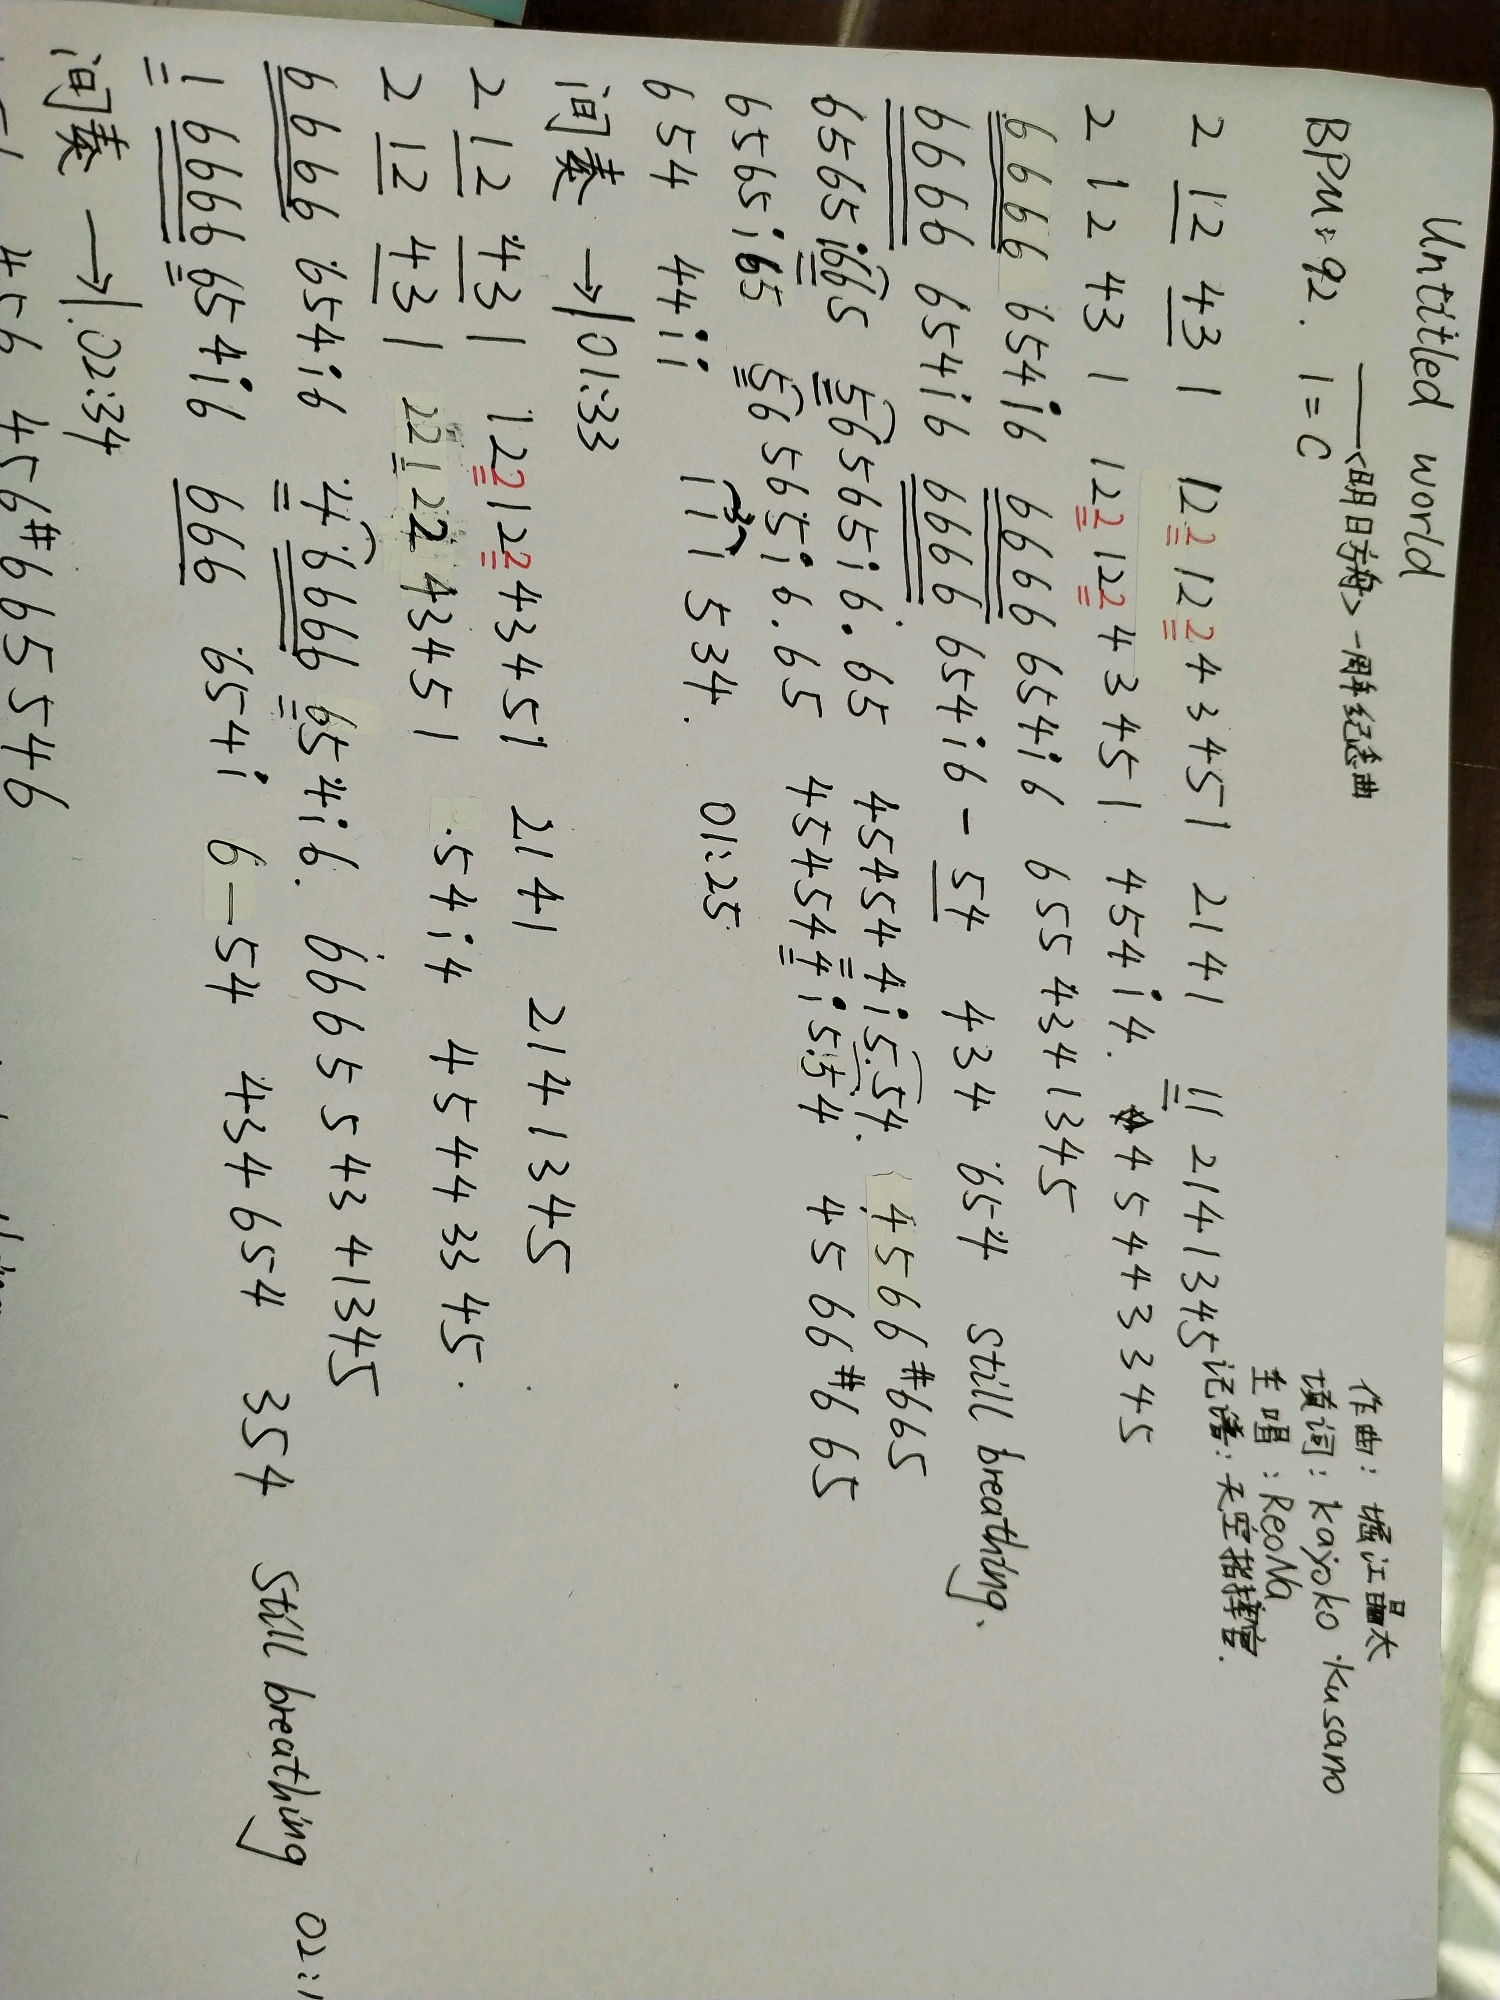 Untitled world
——<明日方舟>一周年纪念曲
BPM=92. 1=C
作曲: 堀江晶太
填词: kayoko ·kusano
主唱: ReoNa
记谱: 天空指挥官.
2 12 43 1 12212243451 2141 11 2141345
2 12 43 1 12212243451 454i4. 454433 45
6666 654i6 6666 654i6 655 4341345
6666 654i6 6666 654i6 - 54 434 654 still breathing.
6565i665 56565i6. 65 454544i5.54. 4566#665
6565i65 56565i6.65 454544i5.54 4566#665
654 44ii 111 534. 01:25
间奏 → 01:33
2 12 431 12212243451 2141 2141345
2 12 431 22122 43451 .54i4 4544 33 45.
6666 654i6 46666 654i6. 6665 54341345
1 6666 654i6 666 654i 6—54 434654 354 still breathing 02:1
间奏 → 02:34
456 456#665546